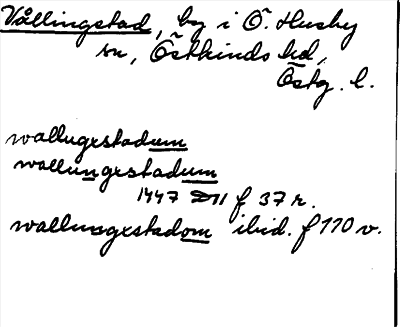 Vållingstad, by i Ö. Husby
sn, Östkinds hd,
Östg. l.
wallugestadum
wallungestadum
1447 D 11 f 37 r.
wallungestadom ibid. f 110 v.